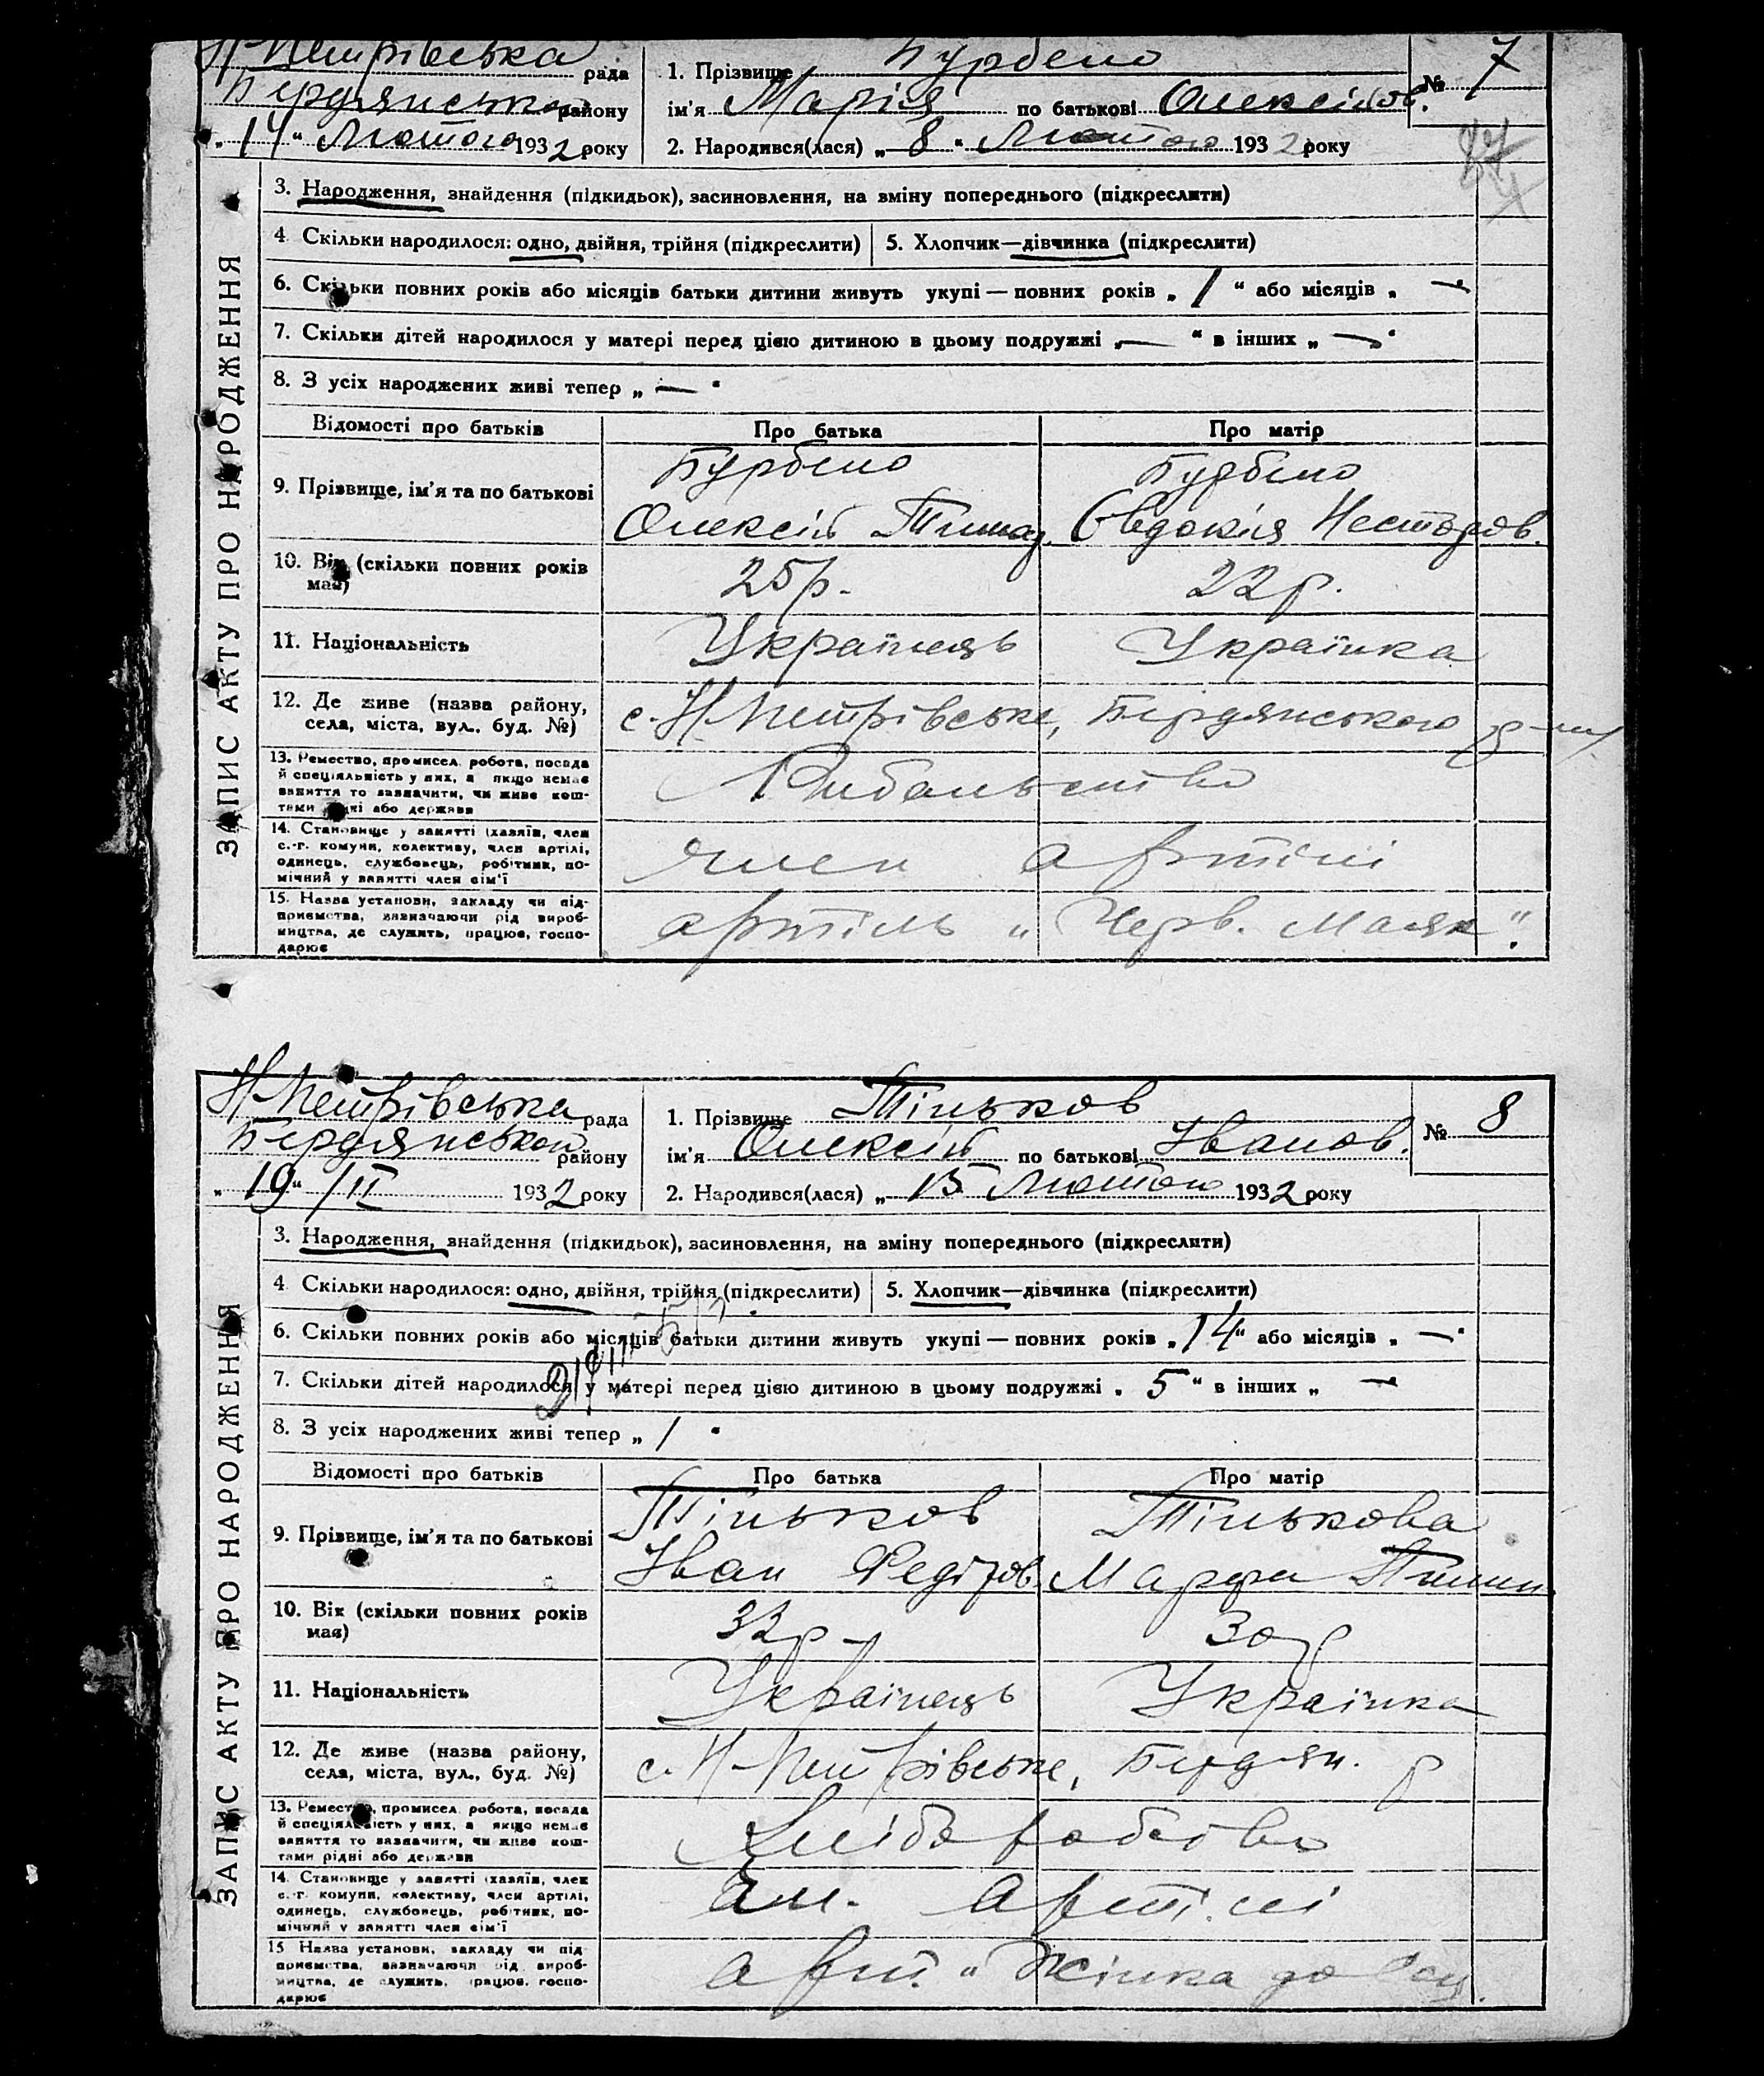 Н-Петрівська рада
Бердянськ. району
„ 14 " Лютого 1932 року
1. Прізвище Бурдено
ім'я Марія по батькові Олексіїов.
2. Народився(лася) „ 8 " Лютого 1932 року
№ 7
ЗАПИС АКТУ ПРО НАРОДЖЕННЯ
3. Народження, знайдення (підкидьок), засиновлення, на зміну попереднього (підкреслити)
4 Скільки народилося: одно, двійня, трійня (підкреслити) 5. Хлопчик—дівчинка (підкреслити)
6. Скільки повних років або місяців батьки дитини живуть укупі — повних років „ 1 " або місяців „ — "
7. Скільки дітей народилося у матері перед цією дитиною в цьому подружжі „ — " в інших „ — "
8. З усіх народжених живі тепер „ — "
Відомості про батьків Про батька Про матір
9. Прізвище, ім'я та по батькові
Бурбено Бурбено
Олексій Тимоф. Євдокія Несторов.
10. Вік (скільки повних років має) 25 р. 22 р.
11. Національність Українець Українка
12. Де живе (назва району, с. Н-Петрівське, Бердянського р-ну
села, міста, вул., буд. №)
13. Ремество, промисел, робота, посада Рибальство
й спеціяльність у них, а якщо немає
заняття то зазначити, чи живе кош-
тами рідні або держави
14. Становище у занятті (хазяїн, член член артілі
с.-г. комуни, колективу, член артілі,
одинець, службовець, робітник, по-
мічний у занятті член сім'ї
15. Назва установи, закладу чи під- артіль „ Черв. Маяк ".
приємства, зазначаючи рід вироб-
ництва, де служить, працює, госпо-
дарює
Н-Петрівська рада
Бердянської району
„ 19 " /II 1932 року
1. Прізвище Тіньков
ім'я Олексій по батькові Іванов.
2. Народився(лася) „ 15 Лютого 1932 року
№ 8
ЗАПИС АКТУ ПРО НАРОДЖЕННЯ
3. Народження, знайдення (підкидьок), засиновлення, на зміну попереднього (підкреслити)
4 Скільки народилося: одно, двійня, трійня (підкреслити) 5. Хлопчик—дівчинка (підкреслити)
6. Скільки повних років або місяців батьки дитини живуть укупі — повних років „ 14 " або місяців „ — "
7. Скільки дітей народилося у матері перед цією дитиною в цьому подружжі „ 5 " в інших „ —
8. З усіх народжених живі тепер „ 1 "
Відомості про батьків Про батька Про матір
9. Прізвище, ім'я та по батькові
Тіньков Тінькова
Іван Федіров. Марфа
10. Вік (скільки повних років має) 32 р. 30 р
11. Національність Українець Українка
12. Де живе (назва району, с. Н-Петрівське, Бердян. р
села, міста, вул., буд. №)
13. Ремество, промисел, робота, посада Хліборобство
й спеціяльність у них, а якщо немає
заняття то зазначити, чи живе кош-
тами рідні або держави
14. Становище у занятті (хазяїн, член Чл. Артілі
с.-г. комуни, колективу, член артілі,
одинець, службовець, робітник, по-
мічний у занятті член сім'ї
15 Назва установи, закладу чи під- Арт. „ Стінка до Соц.
приємства, зазначаючи рід вироб-
ництва, де служить, працює, госпо-
дарює